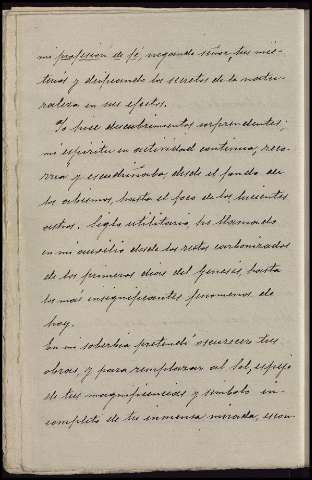 mi profesion de fé, negando señor, tus mis-
terios y despeando los secretos de la natu-
raleza en sus efectos.
Yo hice descubrimientos sorprendentes;
mi espíritu en actividad continua, reco-
rria y escudriñaba, desde el fondo de
los abismos, hasta el foco de los lucientes
astros. Siglo utilitario, he llamado
en mi ausilio desde los restos carbonizados
de los primeros dias del Génesis, hasta
los mas insignificantes fenomenos de
hoy.
En mi soberbia pretendí oscurecer tus
obras, y para remplazar al sol, espejo
de tus magnificencias y símbolo in-
completo de tu inmensa mirada, escon